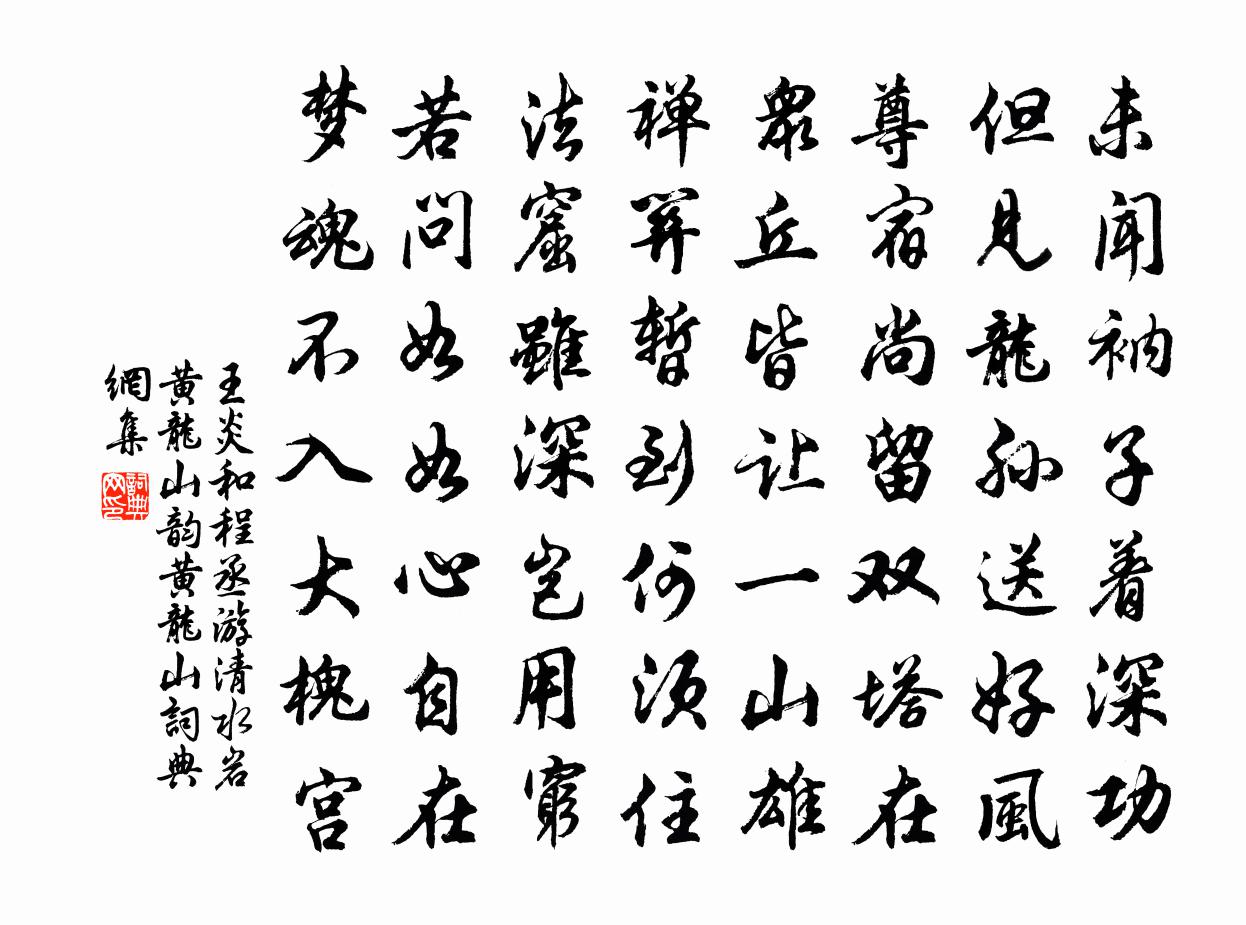 未闻衲子着深功
但见龍孙送好風
尊宿尚留双塔在
眾丘皆让一山雄
禅関暫到何须住
法窟雖深岂用窮
若问如如心自在
梦魂不入大槐宫
王炎和程丞游清水岩
黄龍山韵黄龍山詞典
網集
詞典网印